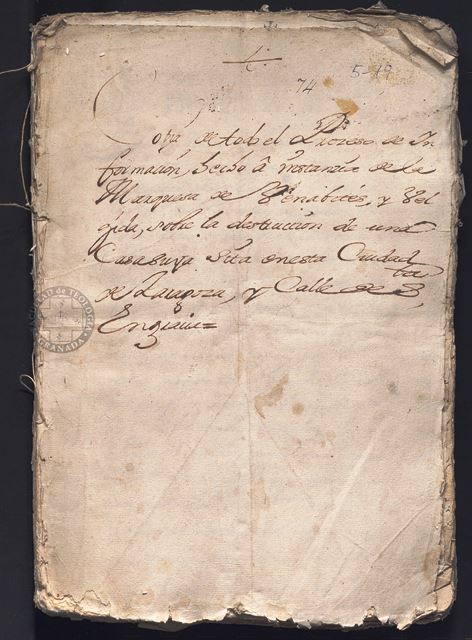 74 5-19
Copia de todo el Proceso de In
formacion, hecho â instancia de la
Marquesa de Benabites, y Bel
gida, sobre la destruccion de una
Casa suya sita enesta Ciudad
de Zaragoza, y Calle de Sta
Engracia=
FACULTAD de TEOLOGIA
GRANADA